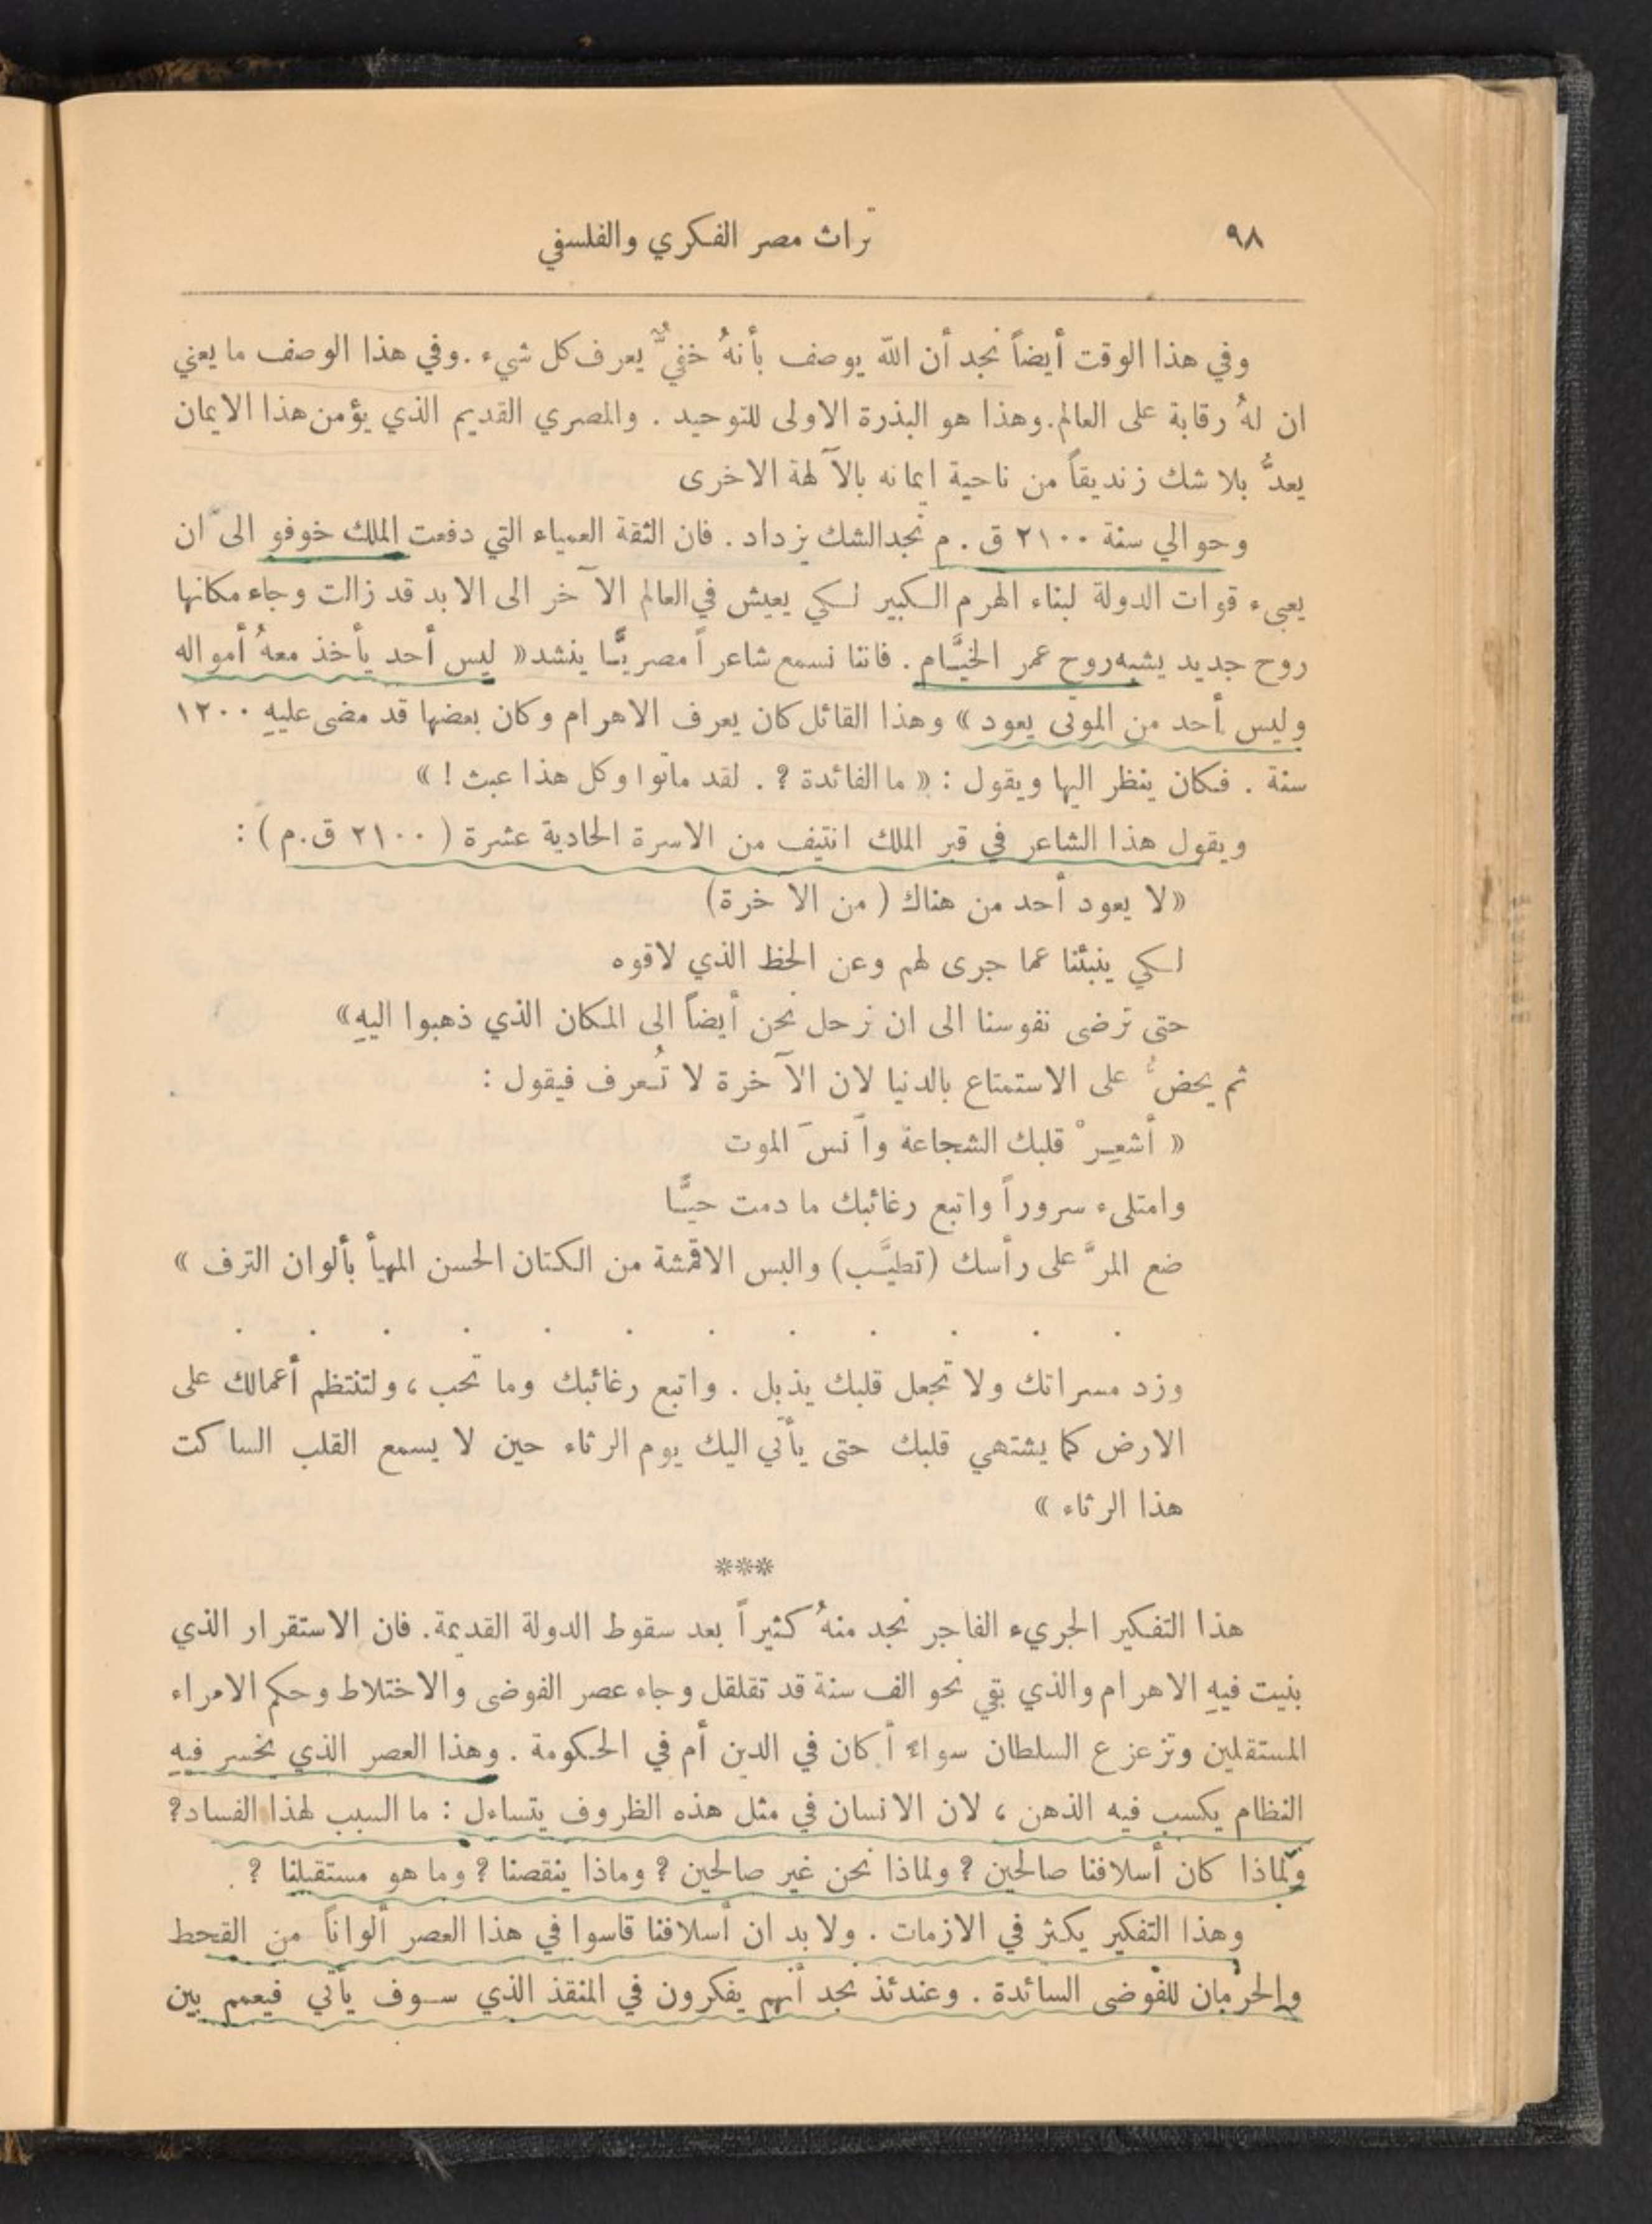 ٩٨
تراث مصر الفكري والفلسفي
وفي هذا الوقت أيضاً نجد أن الله يوصف بأنهُ خفيٌّ يعرف كل شيء. وفي هذا الوصف ما يعني
ان لهُ رقابة على العالم. وهذا هو البذرة الاولى للتوحيد. والمصري القديم الذي يؤمن هذا الايمان
يعدُّ بلا شك زنديقاً من ناحية ايمانه بالآلهة الاخرى
وحوالي سنة ٢١٠٠ ق. م نجد الشك يزداد. فان الثقة العمياء التي دفعت الملك خوفو الى ان
يعبىء قوات الدولة لبناء الهرم الكبير لكي يعيش في العالم الآخر الى الابد قد زالت وجاء مكانها
روح جديد يشبه روح عمر الخيَّام. فاننا نسمع شاعراً مصريًّا ينشد « ليس أحد يأخذ معهُ أمواله
وليس أحد من الموتى يعود » وهذا القائل كان يعرف الاهرام وكان بعضها قد مضى عليهِ ١٢٠٠
سنة. فكان ينظر اليها ويقول : « ما الفائدة ؟. لقد ماتوا وكل هذا عبث ! »
ويقول هذا الشاعر في قبر الملك انتيف من الاسرة الحادية عشرة ( ٢١٠٠ ق.م ) :
« لا يعود أحد من هناك ( من الآخرة)
لكي ينبئنا عما جرى لهم وعن الحظ الذي لاقوه
حتى ترضى نفوسنا الى ان نرحل نحن أيضاً الى المكان الذي ذهبوا اليهِ »
ثم يحضُّ على الاستمتاع بالدنيا لان الآخرة لا تُعرف فيقول :
« أشعِرْ قلبك الشجاعة وأنسَ الموت
وامتلىء سروراً واتبع رغائبك ما دمت حيًّا
ضع المرَّ على رأسك (تطيَّب) والبس الاقمشة من الكتان الحسن المهيأ بألوان الترف »
. . . . . . . . . . . .
وزد مسراتك ولا تجعل قلبك يذبل. واتبع رغائبك وما تحب، ولتنتظم أعمالك على
الارض كما يشتهي قلبك حتى يأتي اليك يوم الرثاء حين لا يسمع القلب الساكت
هذا الرثاء »
***
هذا التفكير الجريء الفاجر نجد منهُ كثيراً بعد سقوط الدولة القديمة. فان الاستقرار الذي
بنيت فيهِ الاهرام والذي بقي نحو الف سنة قد تقلقل وجاء عصر الفوضى والاختلاط وحكم الامراء
المستقلين وتزعزع السلطان سواءٌ أكان في الدين أم في الحكومة. وهذا العصر الذي نخسر فيهِ
النظام يكسب فيه الذهن، لان الانسان في مثل هذه الظروف يتساءل : ما السبب لهذا الفساد؟
ولماذا كان أسلافنا صالحين ؟ ولماذا نحن غير صالحين ؟ وماذا ينقصنا ؟ وما هو مستقبلنا ؟
وهذا التفكير يكثر في الازمات. ولا بد ان أسلافنا قاسوا في هذا العصر ألواناً من القحط
والحرمان للفوضى السائدة. وعندئذ نجد أنهم يفكرون في المنقذ الذي سوف يأتي فيعمم بين